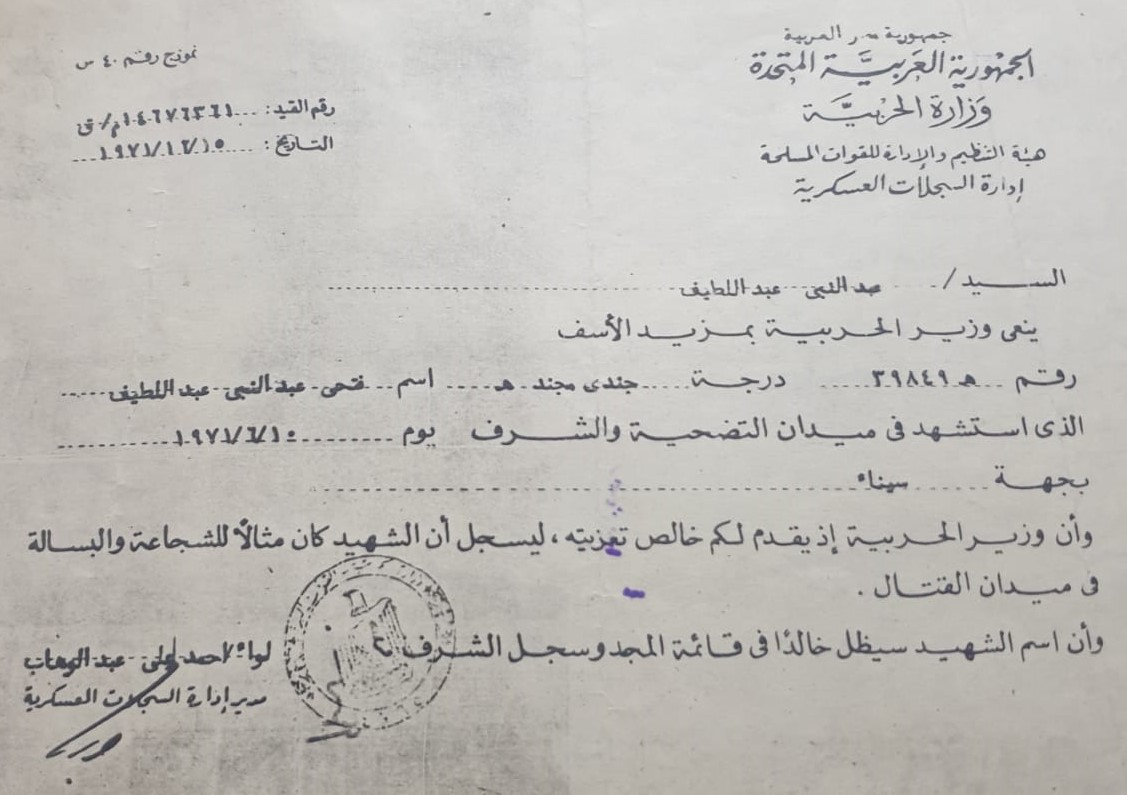 جمهورية مصر العربية
الجمهورية العربية المتحدة
وزارة الحربية
هيئة التنظيم والإدارة للقوات المسلحة
إدارة السجلات العسكرية
نموذج رقم ٤٠ س
رقم القيد :
التاريخ : ١٩٧١/١٢/١٥
الســيد / عبد النبى عبد اللطيف
ينعى وزير الحربية بمزيد الأسف
رقم هـ ٣٩٨٤٩ درجة جندى مجند هـ اسم فتحى عبد النبى عبد اللطيف
الذى استشهد فى ميدان التضحية والشرف يوم ١٩٧١/٦/١٠
بجهة سيناء
وأن وزير الحربية إذ يقدم لكم خالص تعزيته ، ليسجل أن الشهيد كان مثالًا للشجاعة والبسالة
فى ميدان القتال .
وأن اسم الشهيد سيظل خالدًا فى قائمة المجد وسجل الشرف ؟
لواء/ احمد على عبد الوهاب
مدير إدارة السجلات العسكرية